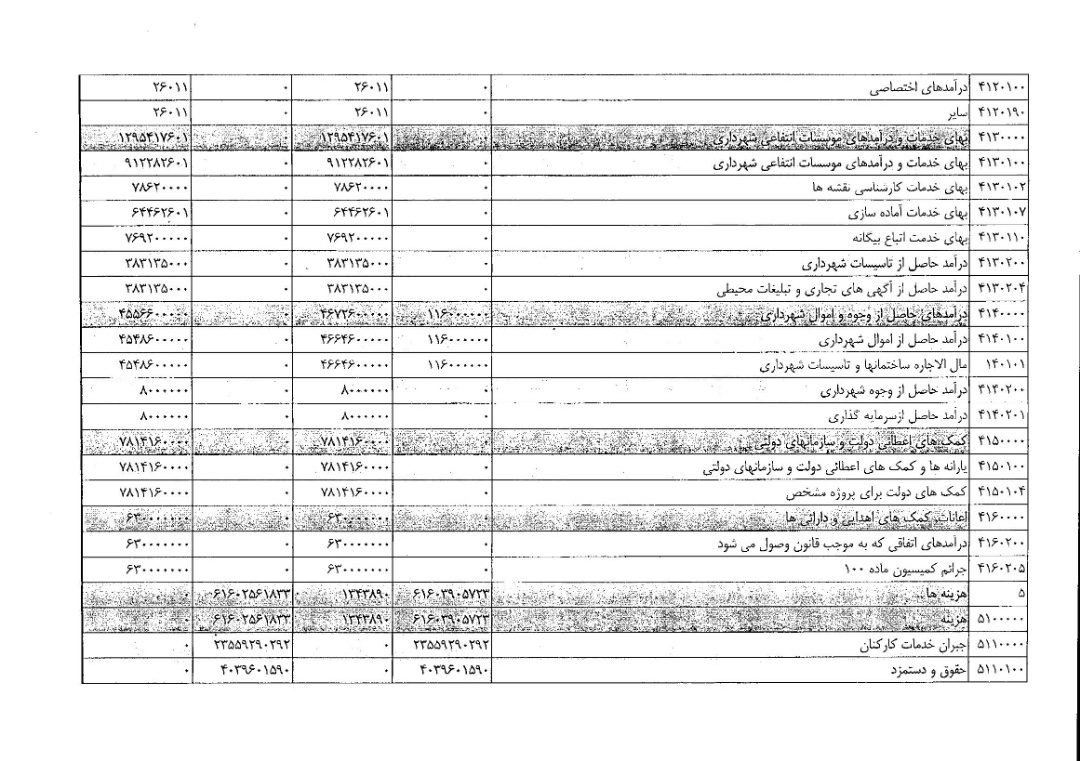 ۴۱۲۰۱۰۰ درآمدهای اختصاصی ۰ ۲۶۰۱۱ ۰ ۲۶۰۱۱
۴۱۲۰۱۹۰ سایر ۰ ۲۶۰۱۱ ۰ ۲۶۰۱۱
۴۱۳۰۰۰۰ بهای خدمات و درآمدهای موسسات انتفاعی شهرداری ۰ ۱۲۹۵۴۱۷۶۰۱ ۰ ۱۲۹۵۴۱۷۶۰۱
۴۱۳۰۱۰۰ بهای خدمات و درآمدهای موسسات انتفاعی شهرداری ۰ ۹۱۲۲۸۲۶۰۱ ۰ ۹۱۲۲۸۲۶۰۱
۴۱۳۰۱۰۲ بهای خدمات کارشناسی نقشه ها ۰ ۷۸۶۲۰۰۰۰ ۰ ۷۸۶۲۰۰۰۰
۴۱۳۰۱۰۷ بهای خدمات آماده سازی ۰ ۶۴۴۶۲۶۰۱ ۰ ۶۴۴۶۲۶۰۱
۴۱۳۰۱۱۰ بهای خدمت اتباع بیگانه ۰ ۷۶۹۲۰۰۰۰۰ ۰ ۷۶۹۲۰۰۰۰۰
۴۱۳۰۲۰۰ درآمد حاصل از تاسیسات شهرداری ۰ ۳۸۳۱۳۵۰۰۰ ۰ ۳۸۳۱۳۵۰۰۰
۴۱۳۰۲۰۴ درآمد حاصل از آگهی های تجاری و تبلیغات محیطی ۰ ۳۸۳۱۳۵۰۰۰ ۰ ۳۸۳۱۳۵۰۰۰
۴۱۴۰۰۰۰ درآمدهای حاصل از وجوه و اموال شهرداری ۱۱۶۰۰۰۰۰۰ ۴۶۷۲۶۰۰۰۰۰ ۰ ۴۵۵۶۶۰۰۰۰۰
۴۱۴۰۱۰۰ درآمد حاصل از اموال شهرداری ۱۱۶۰۰۰۰۰۰ ۴۶۶۴۶۰۰۰۰۰ ۰ ۴۵۴۸۶۰۰۰۰۰
۱۴۰۱۰۱ مال الاجاره ساختمانها و تاسیسات شهرداری ۱۱۶۰۰۰۰۰۰ ۴۶۶۴۶۰۰۰۰۰ ۰ ۴۵۴۸۶۰۰۰۰۰
۴۱۴۰۲۰۰ درآمد حاصل از وجوه شهرداری ۰ ۸۰۰۰۰۰۰ ۰ ۸۰۰۰۰۰۰
۴۱۴۰۲۰۱ درآمد حاصل ازسرمایه گذاری ۰ ۸۰۰۰۰۰۰ ۰ ۸۰۰۰۰۰۰
۴۱۵۰۰۰۰ کمک های اعطائی دولت و سازمانهای دولتی ۰ ۷۸۱۴۱۶۰۰۰۰ ۰ ۷۸۱۴۱۶۰۰۰۰
۴۱۵۰۱۰۰ یارانه ها و کمک های اعطائی دولت و سازمانهای دولتی ۰ ۷۸۱۴۱۶۰۰۰۰ ۰ ۷۸۱۴۱۶۰۰۰۰
۴۱۵۰۱۰۴ کمک های دولت برای پروژه مشخص ۰ ۷۸۱۴۱۶۰۰۰۰ ۰ ۷۸۱۴۱۶۰۰۰۰
۴۱۶۰۰۰۰ اعانات، کمک های اهدایی و دارائی ها ۰ ۶۳۰۰۰۰۰۰۰ ۰ ۶۳۰۰۰۰۰۰۰
۴۱۶۰۲۰۰ درآمدهای اتفاقی که به موجب قانون وصول می شود ۰ ۶۳۰۰۰۰۰۰۰ ۰ ۶۳۰۰۰۰۰۰۰
۴۱۶۰۲۰۵ جرائم کمیسیون ماده ۱۰۰ ۰ ۶۳۰۰۰۰۰۰۰ ۰ ۶۳۰۰۰۰۰۰۰
۵ هزینه ها ۶۱۶۰۳۹۰۵۷۲۳ ۱۳۴۳۸۹۰ ۶۱۶۰۲۵۶۱۸۳۳ ۰
۵۱۰۰۰۰۰ هزینه ۶۱۶۰۳۹۰۵۷۲۳ ۱۳۴۳۸۹۰ ۶۱۶۰۲۵۶۱۸۳۳ ۰
۵۱۱۰۰۰۰ جبران خدمات کارکنان ۲۳۵۵۹۲۹۰۲۹۲ ۰ ۲۳۵۵۹۲۹۰۲۹۲ ۰
۵۱۱۰۱۰۰ حقوق و دستمزد ۴۰۳۹۶۰۱۵۹۰ ۰ ۴۰۳۹۶۰۱۵۹۰ ۰